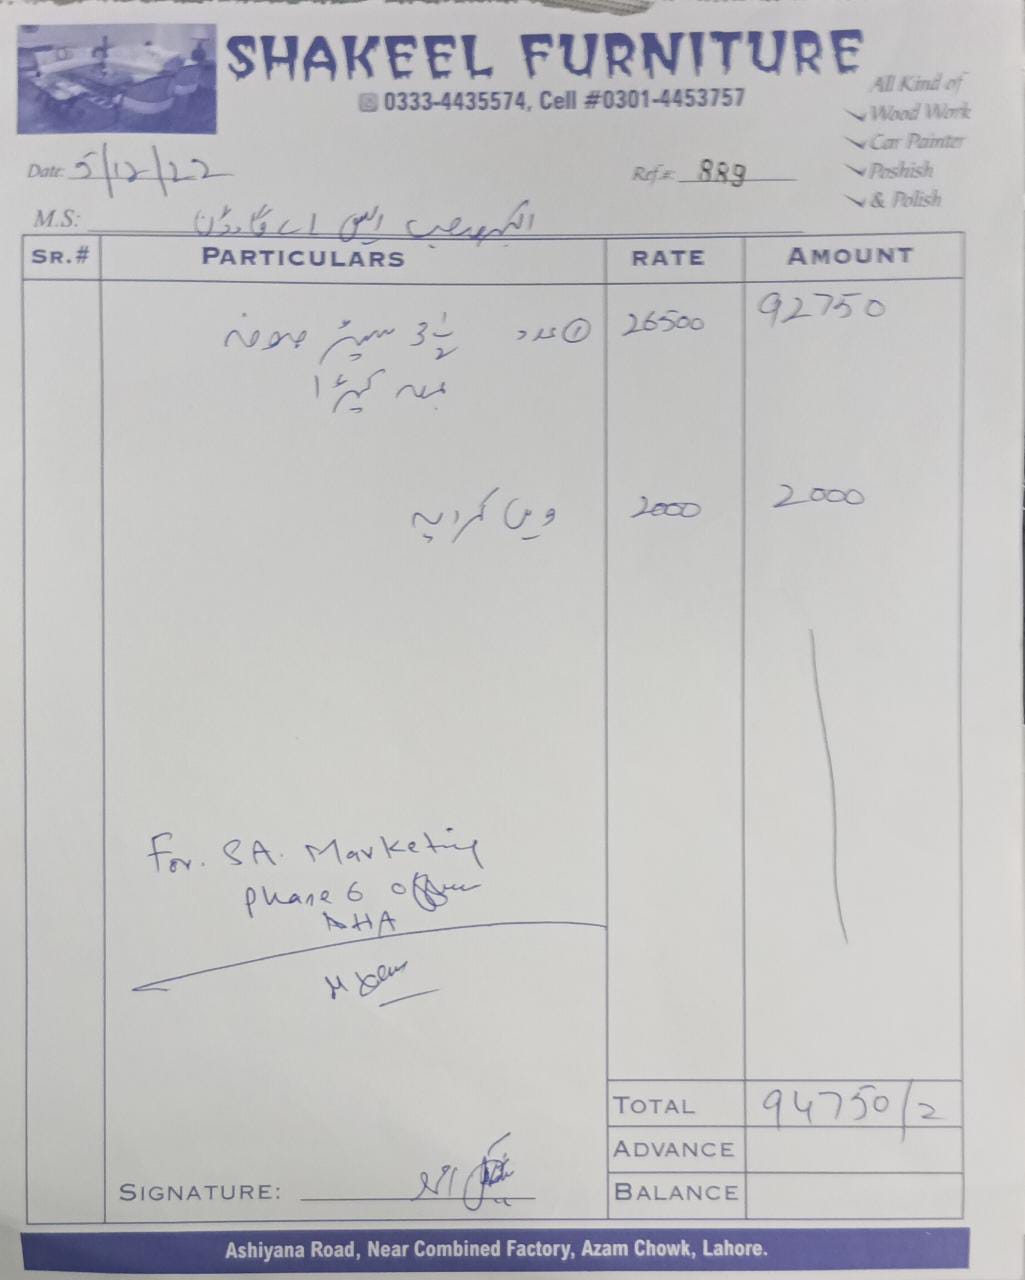 SHAKEEL FURNITURE
0333-4435574, Cell #0301-4453757
All Kind of
Wood Work
Car Painter
Poshish
& Polish
Date: 5/12/22
Ref#: 889
M.S: ایس اے گارڈن
SR.# PARTICULARS RATE AMOUNT
① عدد 3 1/2 سیٹر صوفہ 26500 92750
بمعہ کپڑا
وین کرایہ 2000 2000
For. SA. Marketing
Phase 6 office
DHA
TOTAL 94750/2
ADVANCE
SIGNATURE:
BALANCE
Ashiyana Road, Near Combined Factory, Azam Chowk, Lahore.